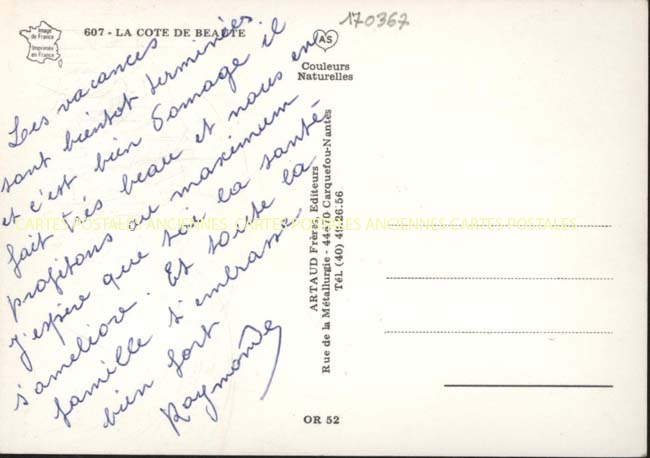 170367
607 - LA COTE DE BEAUTE
Image
de France
Imprimée
en France
AS
Couleurs
Naturelles
Les vacances
sont bientot terminées
et c'est bien domage il
fait très beau et nous en
profitons au maximum
j'espère que toi la santé
s'ameliore. Et toute la
famille t'embrasse
bien fort
Raymonde
ARTAUD Frères, Editeurs
Rue de la Métallurgie - 44470 Carquefou-Nantes
Tél. (40) 49.26.56
CARTES POSTALES ANCIENNES CARTES POSTALES ANCIENNES CARTES POSTALES
OR 52